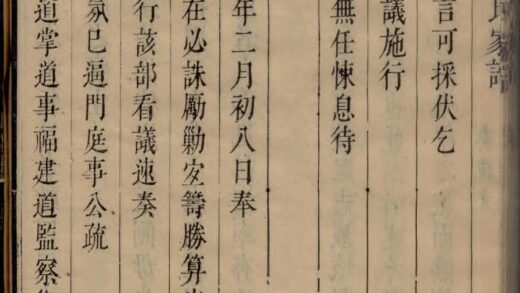 氏家譜
言可採伏乞
議施行
無任悚息待
年二月初八日奉
在必誅勵勦安籌勝算
行該部看議速奏
氛已逼門庭事公疏
道掌道事福建道監察